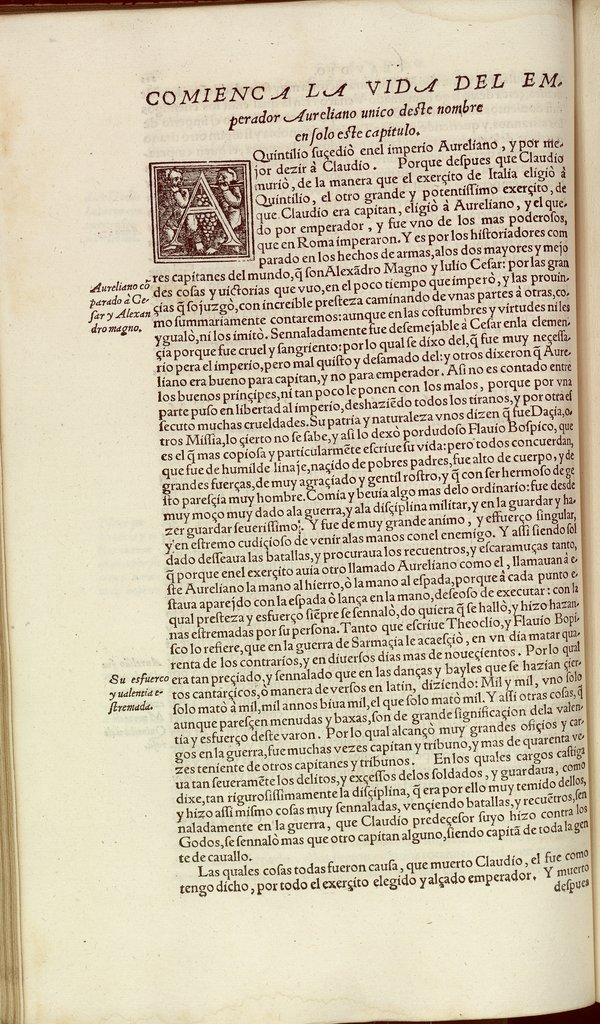 COMIENCA LA VIDA DEL EM-
perador Aureliano unico deſte nombre
en ſolo eſte capitulo.
A Quintilio ſuçediò enel imperio Aureliano, y por me-
jor dezir à Claudio. Porque deſpues que Claudio
murio, de la manera que el exerçito de Italia eligiò à
Quintilio, el otro grande y potentiſsimo exerçito, de
que Claudio era capitan, eligiò à Aureliano, y el que-
do por emperador, y fue vno de los mas poderoſos,
que en Roma imperaron. Y es por los hiſtoriadores com
parado en los hechos de armas, alos dos mayores y mejo
res capitanes del mundo, q̃ ſon Alexãdro Magno y Iulio Ceſar: por las gran
Aureliano cõ
parado à Ce-
ſar y Alexan
dro magno.
des coſas y uictorias que vuo, en el poco tiempo que imperò, y las prouin-
çias q̃ ſojuzgò, con increible preſteza caminando de vnas partes à otras, co-
mo ſummariamente contaremos: aunque en las coſtumbres y virtudes ni les
ygualò, ni los imitò. Sennaladamente fue deſemejable à Ceſar enla clemen-
çia porque fue cruel y ſangriento: por lo qual ſe dixo del, q̃ fue muy neceſſa-
rio pera el imperio, pero mal quiſto y deſamado del: y otros dixeron q̃ Aure-
liano era bueno para capitan, y no para emperador. Aſi no es contado entre
los buenos prinçipes, ni tan poco le ponen con los malos, porque por vna
parte puſo en libertad al imperio, deshaziẽdo todos los tiranos, y por otra eſ
ſecuto muchas crueldades. Su patria y naturaleza vnos dizen q̃ fue Daçia, o-
tros Miſsia, lo çierto no ſe ſabe, y aſi lo dexò por dudoſo Flauio Boſpico, que
es el q̃ mas copioſa y particularmẽte eſcriue ſu vida: pero todos concuerdan,
que fue de humilde linaje, naçido de pobres padres, fue alto de cuerpo, y de
grandes fuerças, de muy agraçiado y gentil roſtro, y q̃ con ſer hermoſo de ge
ſto pareſçia muy hombre. Comia y beuia algo mas delo ordinario: fue desde
muy moço muy dado ala guerra, y ala diſçiplina militar, y en la guardar y ha-
zer guardar ſeueriſsimo. Y fue de muy grande animo, y eſfuerço ſingular,
y en eſtremo cudiçioſo de venir alas manos con el enemigo. Y aſsi ſiendo ſol
dado deſſeaua las batallas, y procuraua los recuentros, y eſcaramuças tanto,
q̃ porque en el exerçito auia otro llamado Aureliano como el, llamauan à e-
ſte Aureliano la mano al hierro, ò la mano al eſpada, porque à cada punto e-
ſtaua aparejdo con la eſpada ò lança en la mano, deſeoſo de executar: con la
qual preſteza y esfuerço ſiẽpre ſe ſennalò, do quiera q̃ ſe hallò, y hizo hazan-
nas eſtremadas por ſu perſona. Tanto que eſcriue Theoclio, y Flauio Bopi-
ſco lo refiere, que en la guerra de Sarmaçia le acaeſçiò, en vn dia matar qua-
renta de los contrarios, y en diuerſos dias mas de noueçientos. Por lo qual
Su esfuerço
y ualentia e-
ſtremada.
era tan preçiado, y ſennalado que en las danças y bayles que ſe hazian çier-
tos cantarçicos, ò manera de verſos en latin, diziendo: Mil y mil, vno ſolo
ſolo matò à mil, mil annos biua mil, el que ſolo matò mil. Y aſsi otras coſas, q̃
aunque pareſçen menudas y baxas, ſon de grande ſignificaçion dela valen-
tia y esfuerço deſte varon. Por lo qual alcançò muy grandes ofiçios y car-
gos en la guerra, fue muchas vezes capitan y tribuno, y mas de quarenta ve-
zes teniente de otros capitanes y tribunos. En los quales cargos caſtiga
ua tan ſeueramẽte los delitos, y exçeſſos delos ſoldados, y guardaua, como
dixe, tan riguroſiſsimamente la diſçiplina, q̃ era por ello muy temido dellos,
y hizo aſsi miſmo coſas muy ſennaladas, vençiendo batallas, y recuẽtros, ſen
naladamente en la guerra, que Claudio predeçeſor ſuyo hizo contra los
Godos, ſe ſennalò mas que otro capitan alguno, ſiendo capitã de toda la gen
te de cauallo.
Las quales coſas todas fueron cauſa, que muerto Claudio, el fue como
tengo dicho, por todo el exerçito elegido y alçado emperador. Y muerto
deſpues